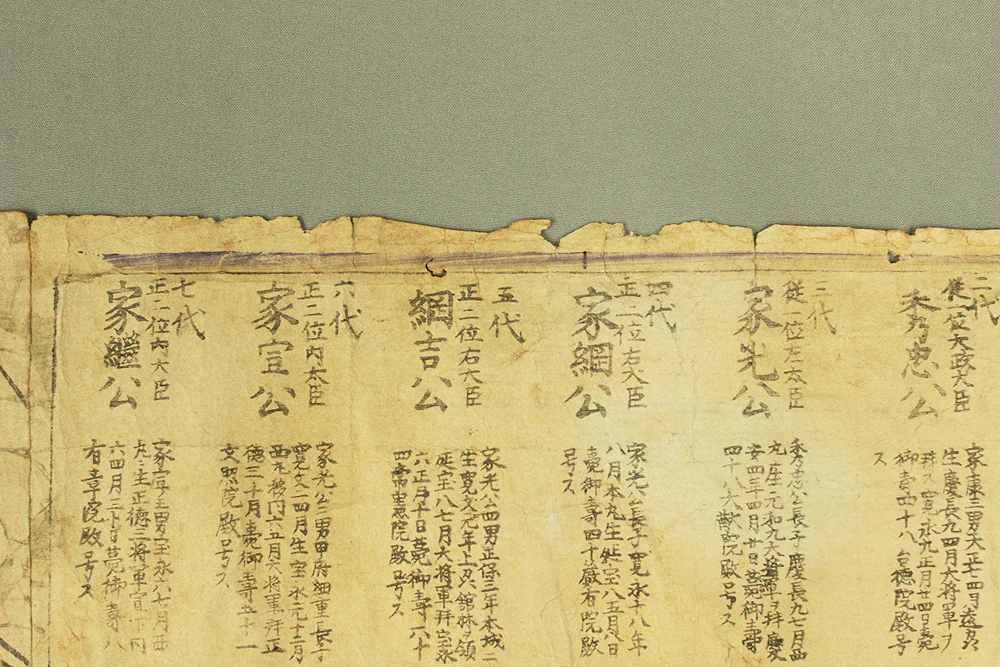 二代
従一位太政大臣
秀忠公
家康三男天正七四月遠刕
生慶長九四月大将軍ヲ
拜ス寛永九正月廿四日薨
御寿五十八台德院殿号
ス
三代
従一位左大臣
家光公
秀忠公長子慶長九七月西
丸産元和九大将軍ヲ拜慶
安四年四月廿日薨御壽
四十八大猷院殿ト号ス
四代
正二位右大臣
家綱公
家光公長子寛永十八年
八月本丸生延宝八五月八日
薨御寿四十嚴有院殿
号ス
五代
正二位右大臣
綱吉公
家光公四男正保三年本城ニ
生寛文元年上刕舘林ヲ領
延宝八七月大将軍拜宝永
六正月十日薨御壽六十
四常憲院殿号ス
六代
正二位内大臣
家宣公
家光公三男甲府綱重長子
寛文二四月生宝永元十二月
西丸移同六五月大将軍拜正
德二十月薨御寿五十一
文昭院殿号ス
七代
正二位内大臣
家繼公
家宣三男宝永六七月西
丸ニ生正德三将軍宣下同
六四月三十日薨御寿八
有章院殿号ス